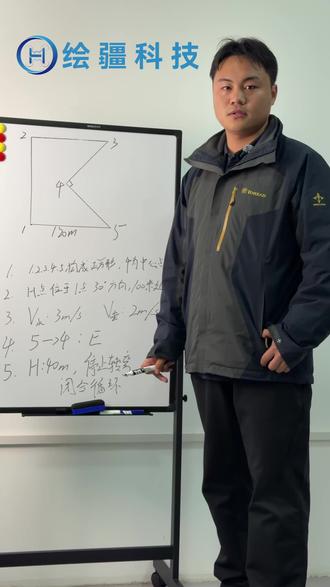 绘疆科技
2
3
4
1
120m
5
1. 1.2.3.4.5构成正方形, 4为中心点
2 H点位于1点30°方向,100米处
3. V水:3m/s V垂:2m/s
4. 5→4:E
5. H:40m,停止转弯
闭合循环
TOREAD